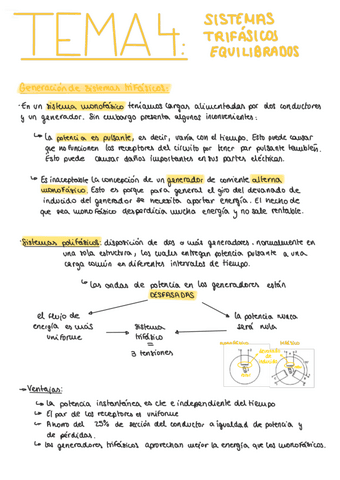 TEMA 4:
SISTEMAS
TRIFÁSICOS
EQUILIBRADOS
Generación de sistemas trifásicos:
· En un sistema monofásico teníamos cargas alimentadas por dos conductores
y un generador. Sin embargo presenta algunos inconvenientes:
↳ La potencia es pulsante, es decir, varía con el tiempo. Esto puede causar
que no funcionen los receptores del circuito por tener par pulsante también.
Esto puede causar daños importantes en sus partes eléctricas.
↳ Es inaceptable la concepción de un generador de corriente alterna
monofásico. Esto es porque para general el giro del devanado de
inducido del generador se necesita aportar energía. El hecho de
que sea monofásico desperdicia mucha energía y no sale rentable.
· Sistemas polifásicos: disposición de dos o más generadores. normalmente en
una sola estructura, los cuales entregan potencia pulsante a una
carga común en diferentes intervalos de tiempo.
↳ Las ondas de potencia en los generadores están
DESFASADAS
el flujo de
energía es más
uniforme
sistema
trifásico
=
3 tensiones
la potencia nunca
será nula
→ Ventajas:
↳ La potencia instantánea es cte e independiente del tiempo
↳ El par de los receptores es uniforme
↳ Ahorro del 25% de sección del conductor a igualdad de potencia y
de pérdidas.
↳ los generadores trifásicos aprovechan mejor la energía que los monofásicos.